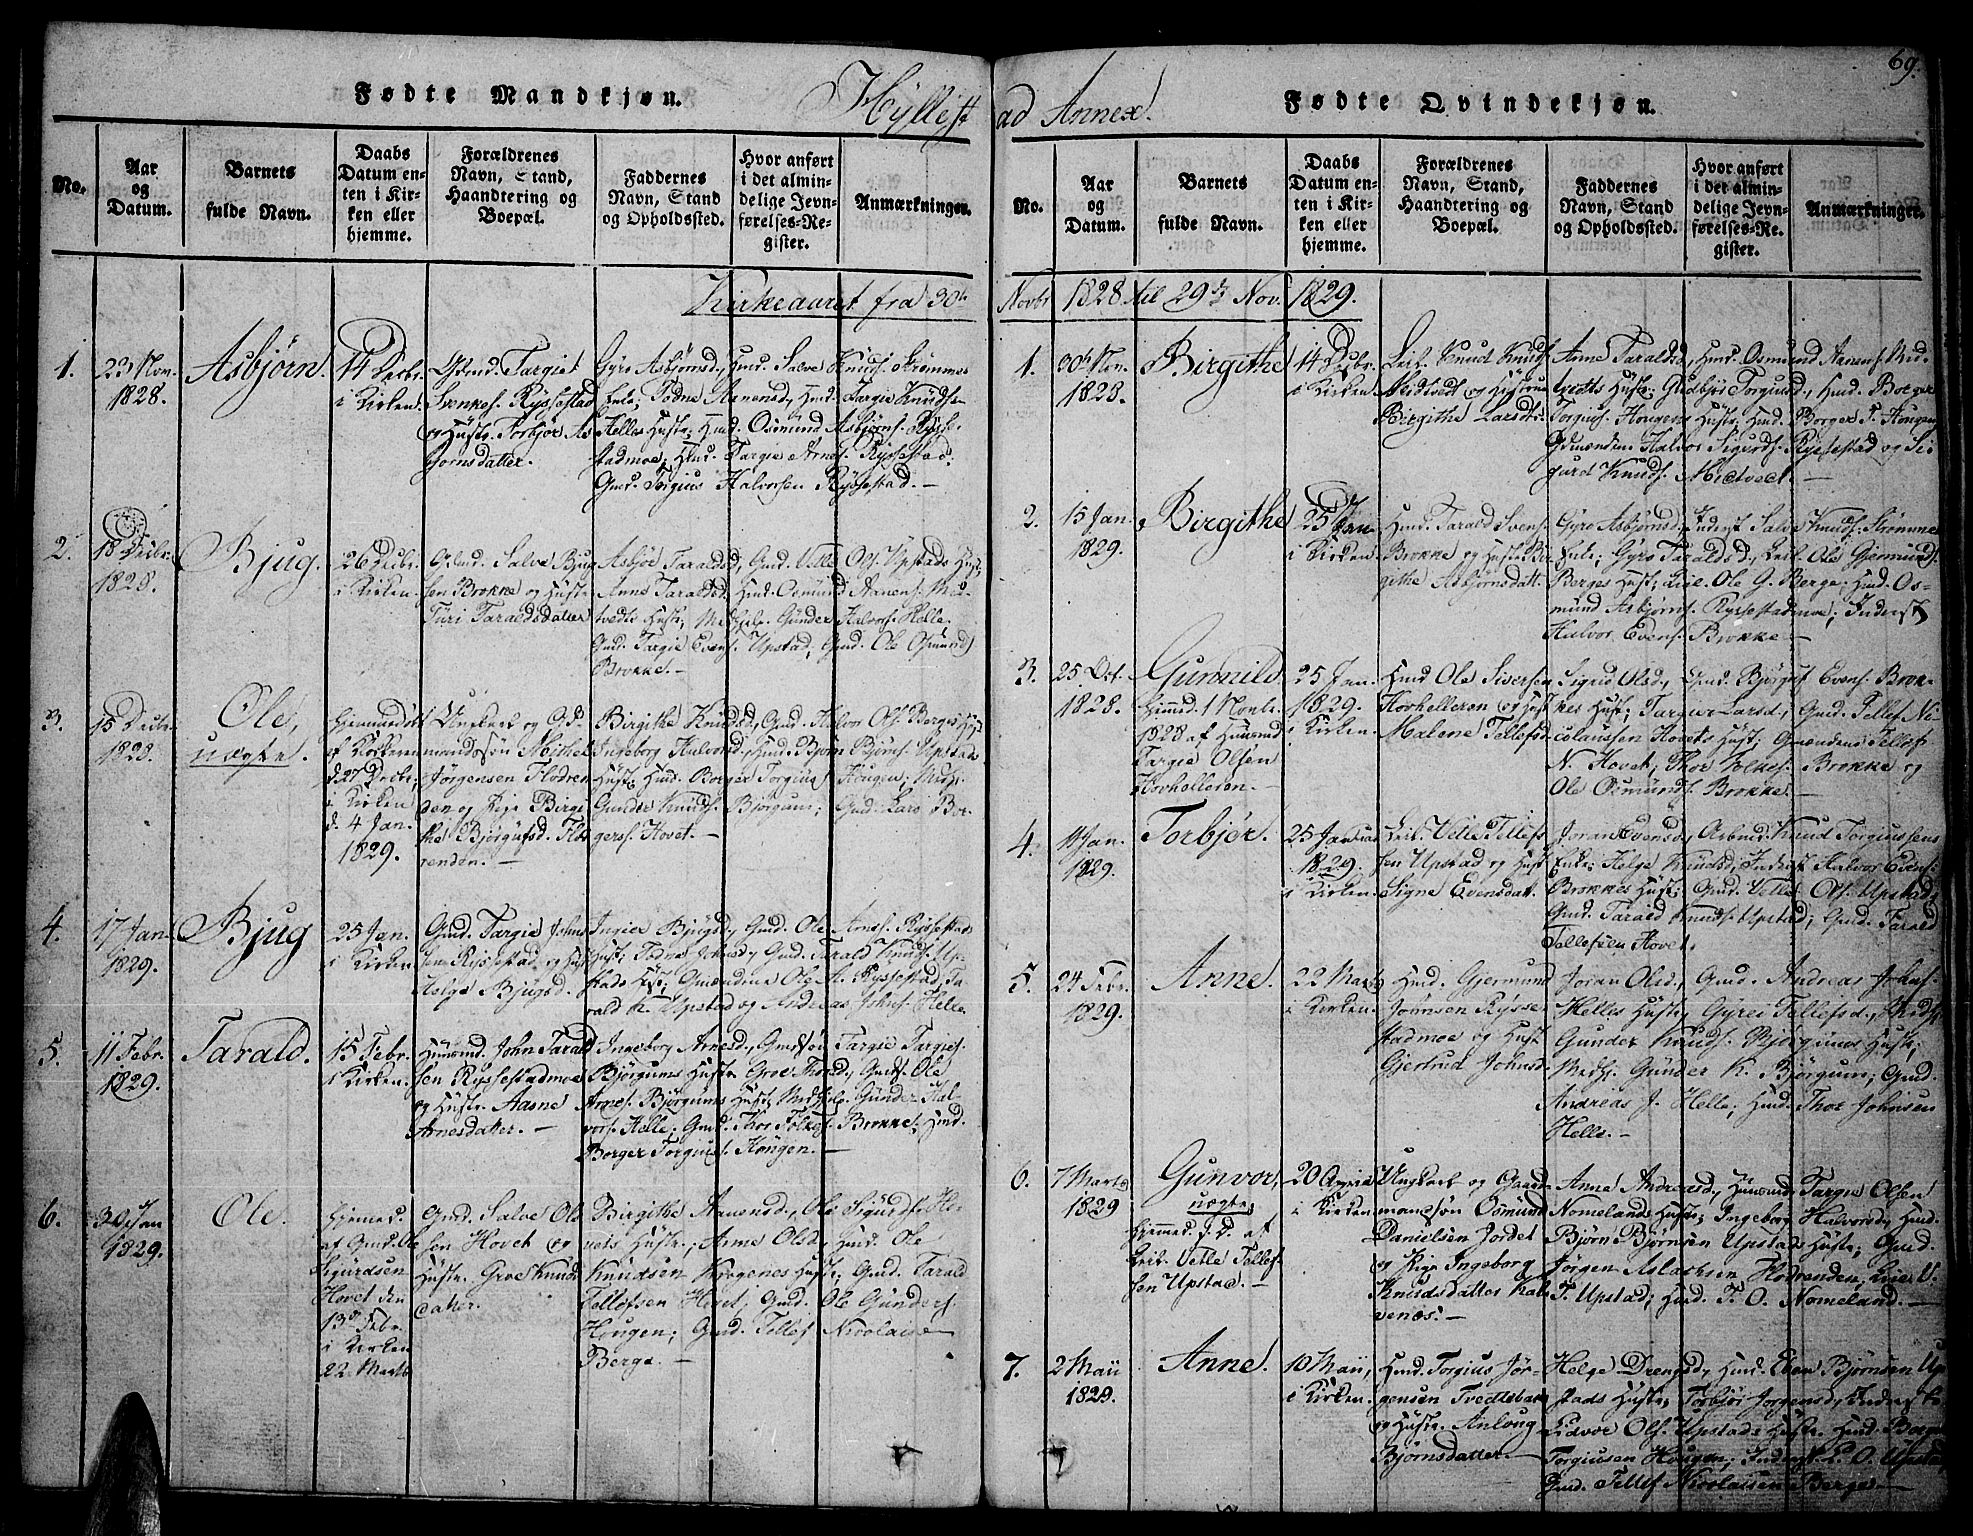 69.
Fødte Mandkjøn.
Hyllest
No.
Aar og Datum.
Barnets fulde Navn.
Daabs Datum enten i Kirken eller hjemme.
Forældrenes Navn, Stand, Haandtering og Boepæl.
Faddernes Navn, Stand og Opholdssted.
Hvor anført i det almindelige Jevnførelses-Register.
Anmærkninger.
Kirkeaaret fra 30te
1.
23 Nov.
1828.
Asbjørn
14 Decbr.
i Kirken
Gbrud. Targie
Svenkes. Ryssestad
og Hustr. Torbjør As
bjornsdatter.
Gyro Asbjornsd., Hmd. Salve Knuds. Strømmes
Enke; Todne Aanensd., Hmd. Targie Knuds.
Helles Hustr; Hmd. Osmund Asbjørns. Rysse-
stadmoe; Hmd. Targie Arnes. Ryssestad,
Gmd. Torgius Halvorsen Ryssestad.—
2.
18 Decbr.
1828.
Bjug.
26 Decbr.
i Kirken.
Gmd. Salve Bjug
sen Brokke og Hustr.
Turi Taraldsdatter
Asbjør Taraldsd., Gmd. Vetle Ols. Upstads Hust;
Anne Taraldsd. Hmd. Osmund Aanens. Mid-
tvedts Hust; Medhjelp. Gunder Halvors. Helle,
Gmd. Targie Evens. Upstad, Gmd. Ole Osmunds.
Brokke.—
3.
15 Decbr.
1828.
Ole,
uægte.
Hjemmedøbt
af Kirkeren
d. 27 Decbr.,
i Kirken
d. 4 Jan.
1829.
Ungkarl og Gd-
mandssøn Michel
Jørgensen Flodren
den og Pige Birgi
the Bjørgufsd. Flo
renden.—
Birgithe Knudsd., Gmd. Halvor Ols. Berges Hust
Ingeborg Halvord., Hmd. Bjørn Bjørns. Upstads
Hust; Hmd. Borger Torgius. Hougen; Medhj.
Gunder Knuds. Bjørgum; Gmd. Lars Bor-
gers. Hovet.—
4.
17 Jan.
1829.
Bjug
25 Jan.
i Kirken
Gmd. Targie Johns
sen Ryssestad og Hust
Helge Bjugsd.
Ingier Bjugsd., Gmd. Ole Arnes. Ryssestads
Hust; Todne Johnsd., Gmd. Tarald Knuds. Up-
stads Hust; Gmændene Ole A. Ryssestad, Ta-
rald K. Upstad og Andreas Johns. Helle
5.
11 Febr.
1829.
Tarald.
15 Febr.
i Kirken.
Huusmd. John Tarald
sen Ryssestadmoe
og Hustr. Aasne
Arnesdatter.—
Ingeborg Arnesd., Gmssøn Targie Targies.
Bjørgums Hustr. Groe Thorsd., Gmd. Ole
Arnes. Bjørgums Hust; Medhjelp. Gunder Hal-
vors. Helle; Gmd. Thor Folkes. Brokke; Hmd.
Borger Torguus. Hougen.—
6.
30 Jan
1829.
Ole.
Hjemmed.
af Gmd. Ole
Sigurdsen
Hovet den
13de Febr.
i Kirken
22 Marts
Gmd. Salve Ols
sen Hovet og
Hustr. Groe Knuds
datter.
Birgithe Aanensd., Ole Sigurds. Ho-
vets Hustr.; Anne Olsd. Hmd. Ole
Knudsen Hougenes Hust; Gmd. Tarald
Tellefsen Hovet, Gmd. Ole Gunders.
Hougen; Gmd. Tellef Nicolaisen
Berge.—
ad Annex.
Fødte Qvindekjøn.
No.
Aar og Datum.
Barnets fulde Navn.
Daabs Datum enten i Kirken eller hjemme.
Forældrenes Navn, Stand, Haandtering og Boepæl.
Faddernes Navn, Stand og Opholdssted.
Hvor anført i det almindelige Jevnførelses-Register.
Anmærkninger.
Novbr 1828 til 29de Nov. 1829.
1.
30te Nov.
1828.
Birgithe
14 Decbr.
i Kirken
Leil. Knud Knuds.
Midtvedt og Hustrue
Birgithe Larsdtr.
Anne Taraldsd., Hmd. Osmund Aanens. Mid-
tvedts Hustr; Gudbjør Torguusd., Hmd. Borger
Torgius. Hougens Hustr; Hmd. Borger T. Hougen,
Gdmændene Halvor Sigurds. Ryssestad og Si-
gurd Knuds. Midtvedt.—
2.
15 Jan.
1829.
Birgithe
25 Jan.
i Kirken.
Hmd. Tarald Svens.
Brokke og Hustr. Bir-
githe Asbjornsdatt.
Gyro Asbjornsd., Inderst Salve Knuds. Strømmes
Enke; Gyro Taraldsd., Leil. Ole Gjermunds.
Berges Hust; Leil. Ole G. Berge; Hmd. Os-
mund Asbjørns. Ryssestadmoe; Inderst
Halvor Evens. Brokke.—
3.
25 Oct.
1828.
Gunnild
Hjemmd. 1 Novbr.
1828 af Huusmd
Targie Olsen
Hovhelleren.—
25 Jan.
1829.
i Kirken.
Hmd Ole Siversen
Hovhelleren og Hust
Malene Tellefsd.
Sigrid Olsd., Gmd. Bjørguf Evens. Brok-
kes Hust; Targier Larsd, Gmd. Tellef Ni-
colaissen Hovets Hust; Gmændene Tellef
N. Hovet; Thor Folkes. Brokke og
Ole Osmunds. Brokke.—
4.
11 Jan.
1829.
Torbjør.
25 Januar
1829.
i Kirken.
Leil. Vetle Tellefs
sen Upstad og Hust
Signe Evensdat.
Joran Evensd., Arbmd. Knud Torgiussens
Enke; Helge Knudsd, Inderst Halvor Evens.
Brokkes Hust; Gmd. Vetle Ols. Upstad,
Gmd. Tarald Knuds. Upstad; Gmd. Tarald
Tellefsen Hovet.
5.
24 Febr.
1829.
Anne
22 Marts
i Kirken.
Hmd. Gjermund
Jørnsen Rysse-
stadmoe og Hust
Gjertrud Johnsd.
Joran Olsd., Gmd. Andreas Johns.
Helles Hust; Gyroe Tellefsd., Medhj.
Gunder Knuds. Bjørgums Hust;
Medhj. Gunder K. Bjørgum; Gmd.
Andreas J. Helle; Hmd. Thor Johnsen
Helle.—
6.
7 Marts
1829
Gunvor,
uægte,
Hjemmed. s. d. af
Leil. Vetle Tellef
sen Upstad.—
20 April
i Kirken
Ungkarl og Gaard-
mandsøn Osmund
Danielsen Jordet
og Pige Ingeborg
Knudsdatter Kal-
venæs.—
Anne Andreasd., Huusmd. Targie Olsen
Nomelands Hust; Ingeborg Halvorsd., Hmd.
Bjørn Bjørnsen Upstads Hust; Gmd.
Jørgen Aslachsen Flodrenden, Leil. V.
T. Upstad; Hmd. T. O. Nomeland.—
7.
2 Maii
1829.
Anne.
10 Maii,
i Kirken.
Hmd. Torgius Jør-
gensen Tvedtebak
og Hustr. Anlaug
Bjørnsdatter.
Helge Drengsd., Hmd. Even Bjørnsen Up-
stads Hust; Torbjør Jorgensd., Inderst
Lidvor Ols. Upstads Hust; Hmd. Borger
Torgiusen Hougen; Inderst L. O. Upstad,
Gmd. Tellef Nicolaisen Berge.—